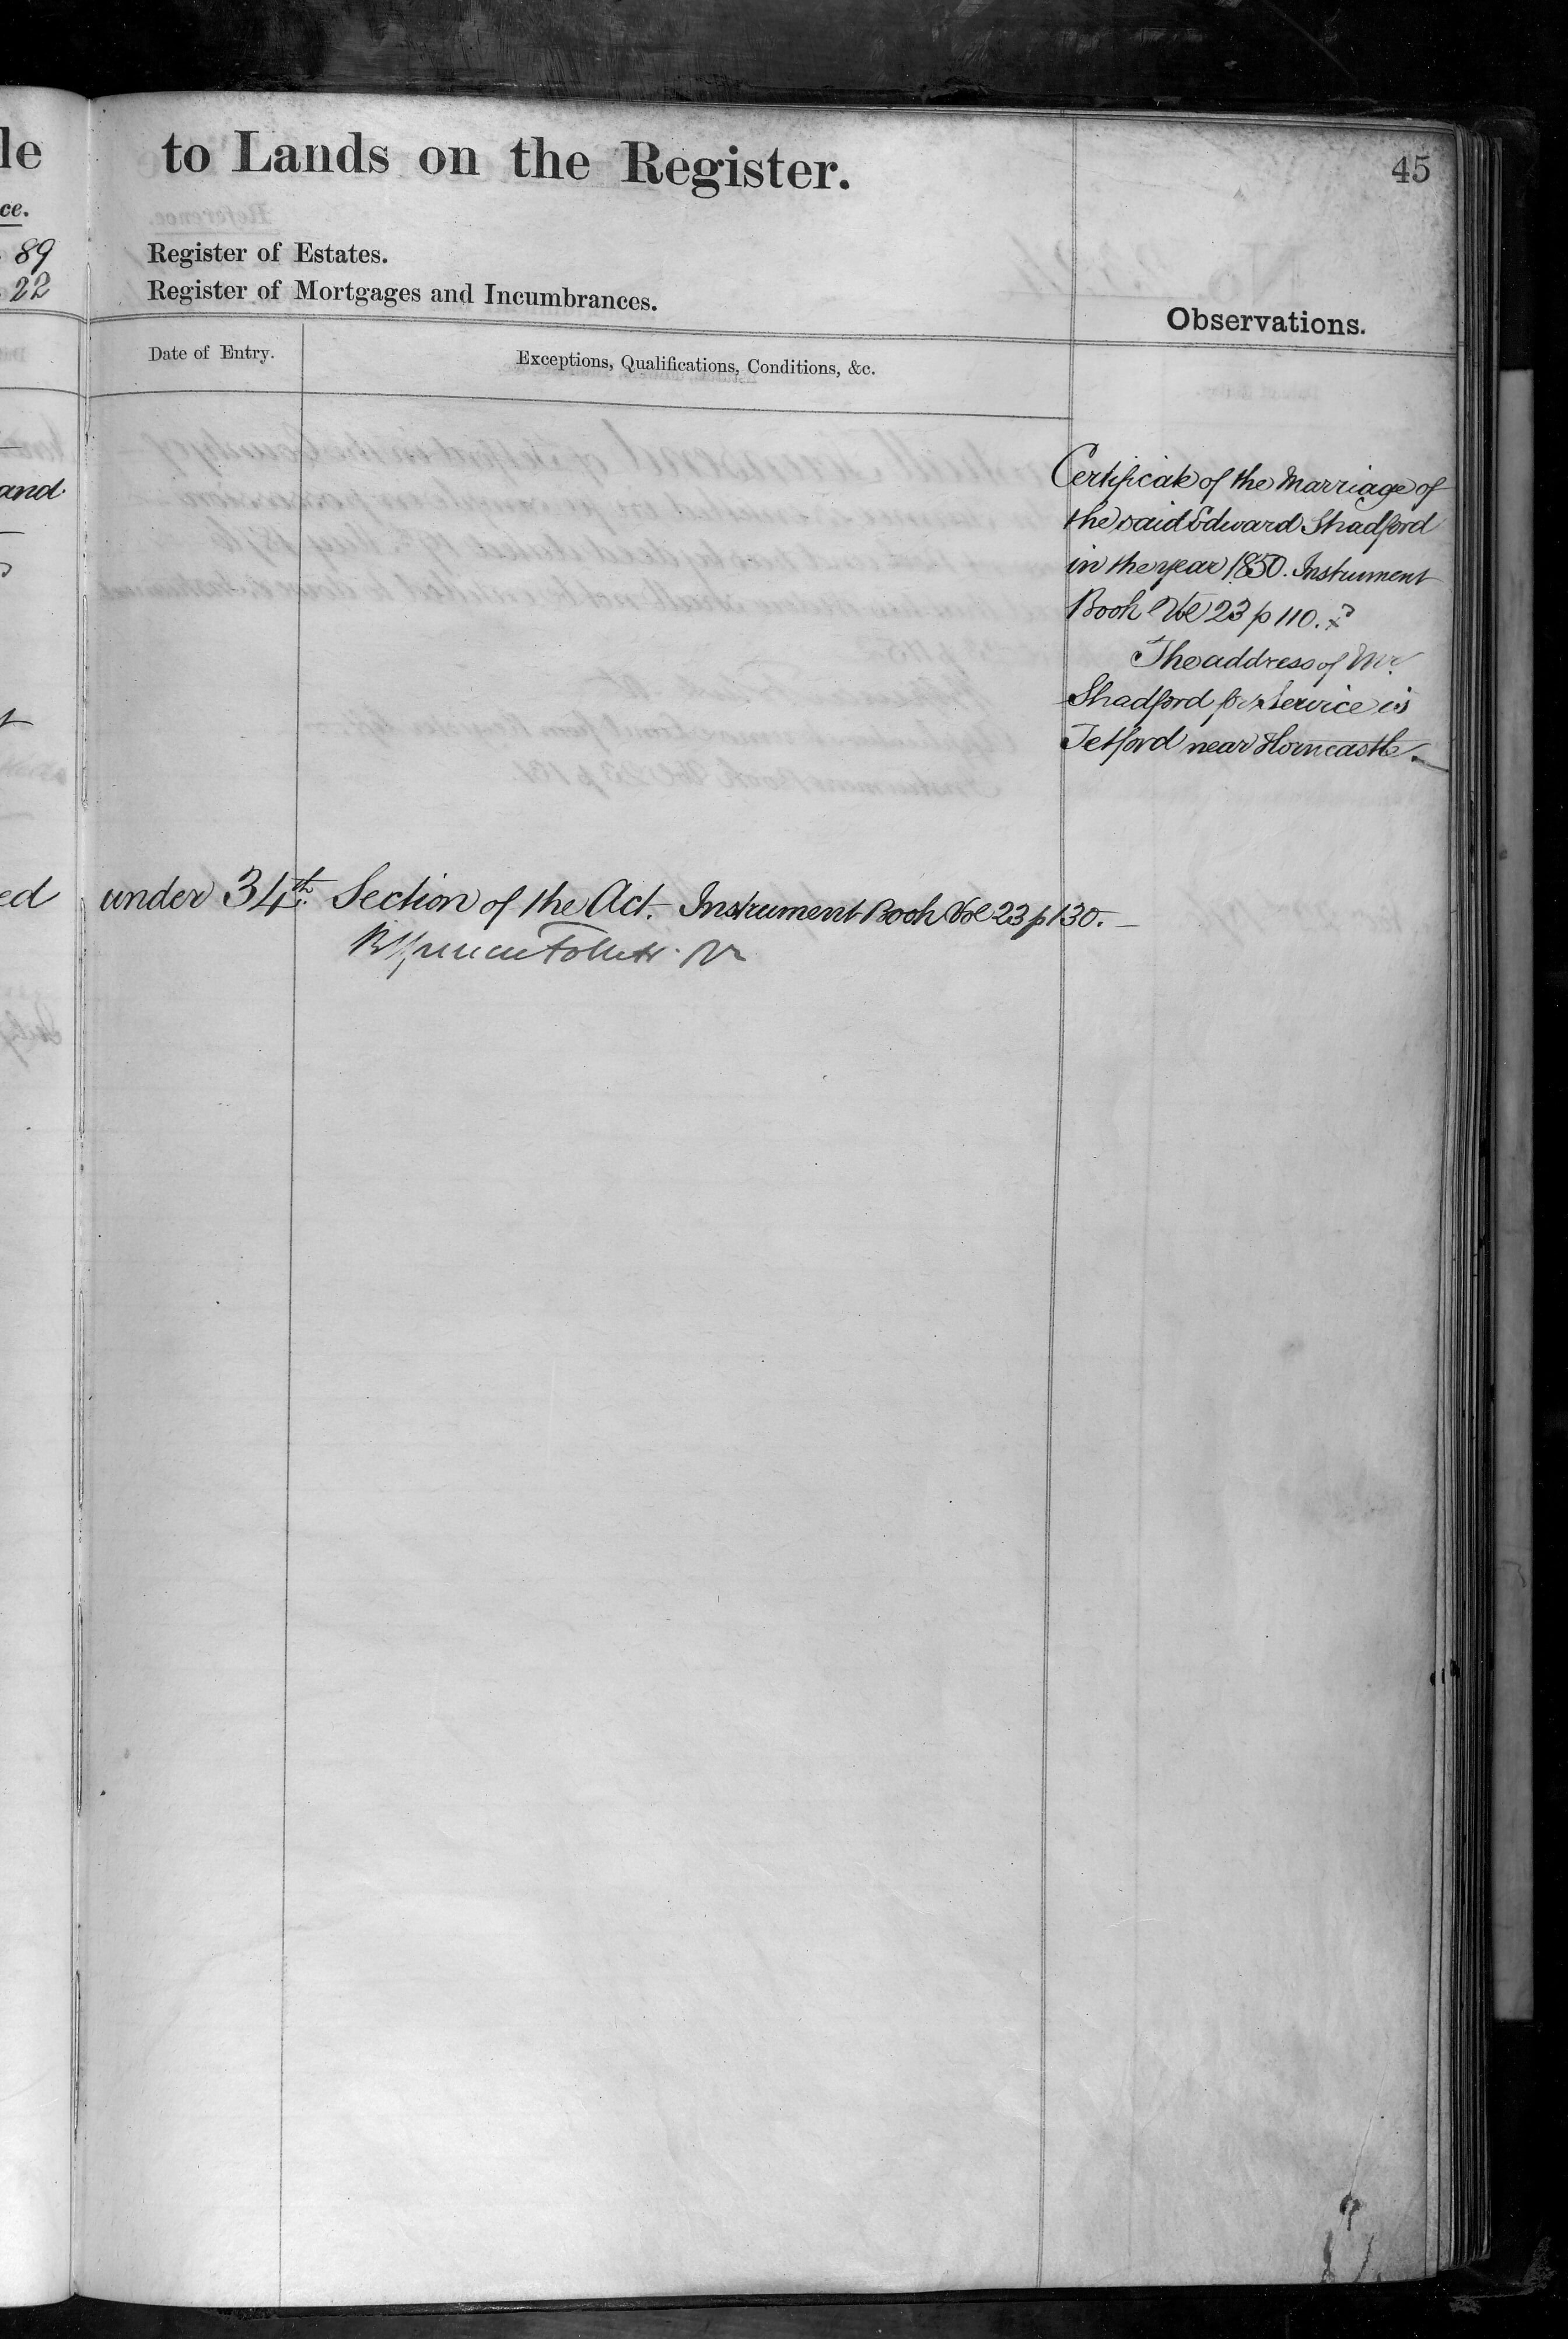 le
to Lands on the Register.
45
ce.
89
Register of Estates.
22
Register of Mortgages and Incumbrances.
Observations.
Date of Entry.
Exceptions, Qualifications, Conditions, &c.
and
Certificate of the Marriage of
the said Edward Shadford
in the year 1850. Instrument
Book Vol 23 p 110.
The address of Mr.
Shadford for Service is
Tetford near Horncastle.
ed
under 34th. Section of the Act. Instrument Book Vol 23 p 130.